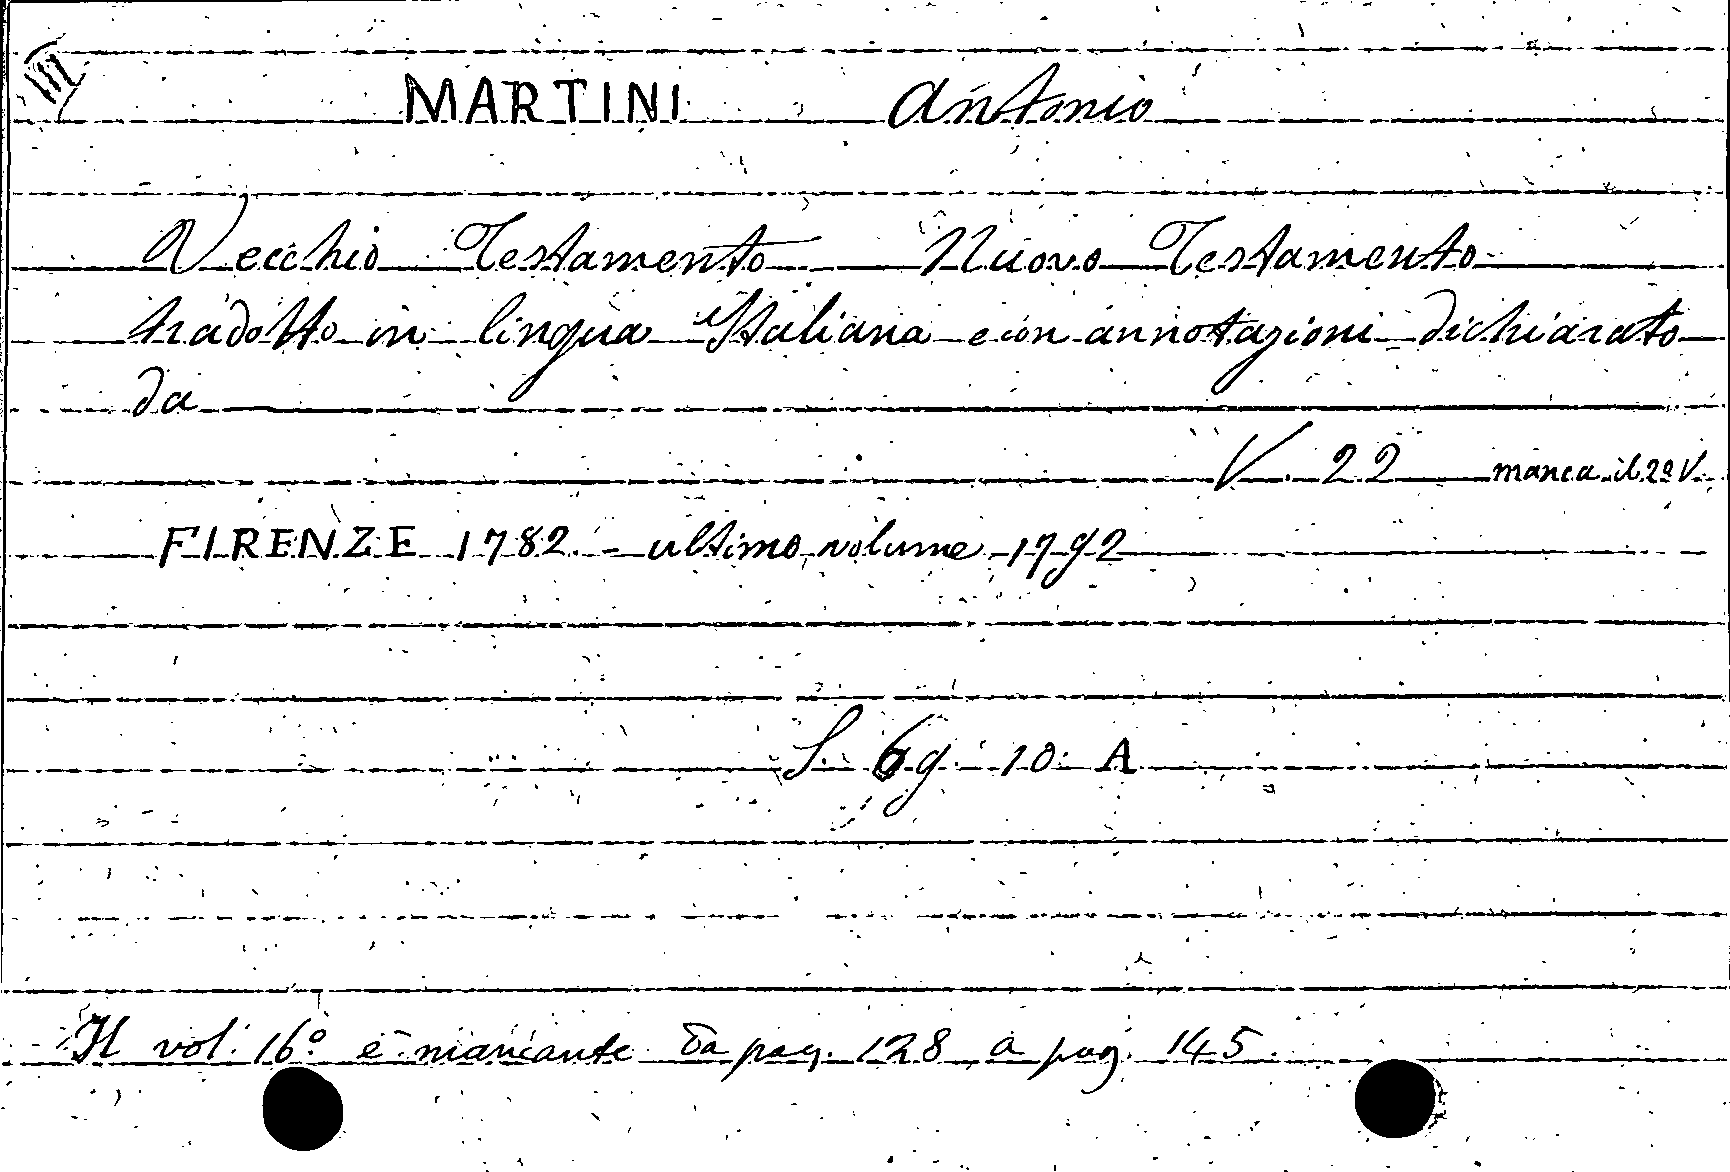 III
MARTINI Antonio
Vecchio Testamento Nuovo Testamento
tradotto in lingua Italiana e con annotazioni dichiarato
da
V. 22 manca il 2º V.
FIRENZE 1782 - ultimo volume 1792
S. 69. 10. A
Il vol. 16º è mancante da pag. 128 a pag. 145.